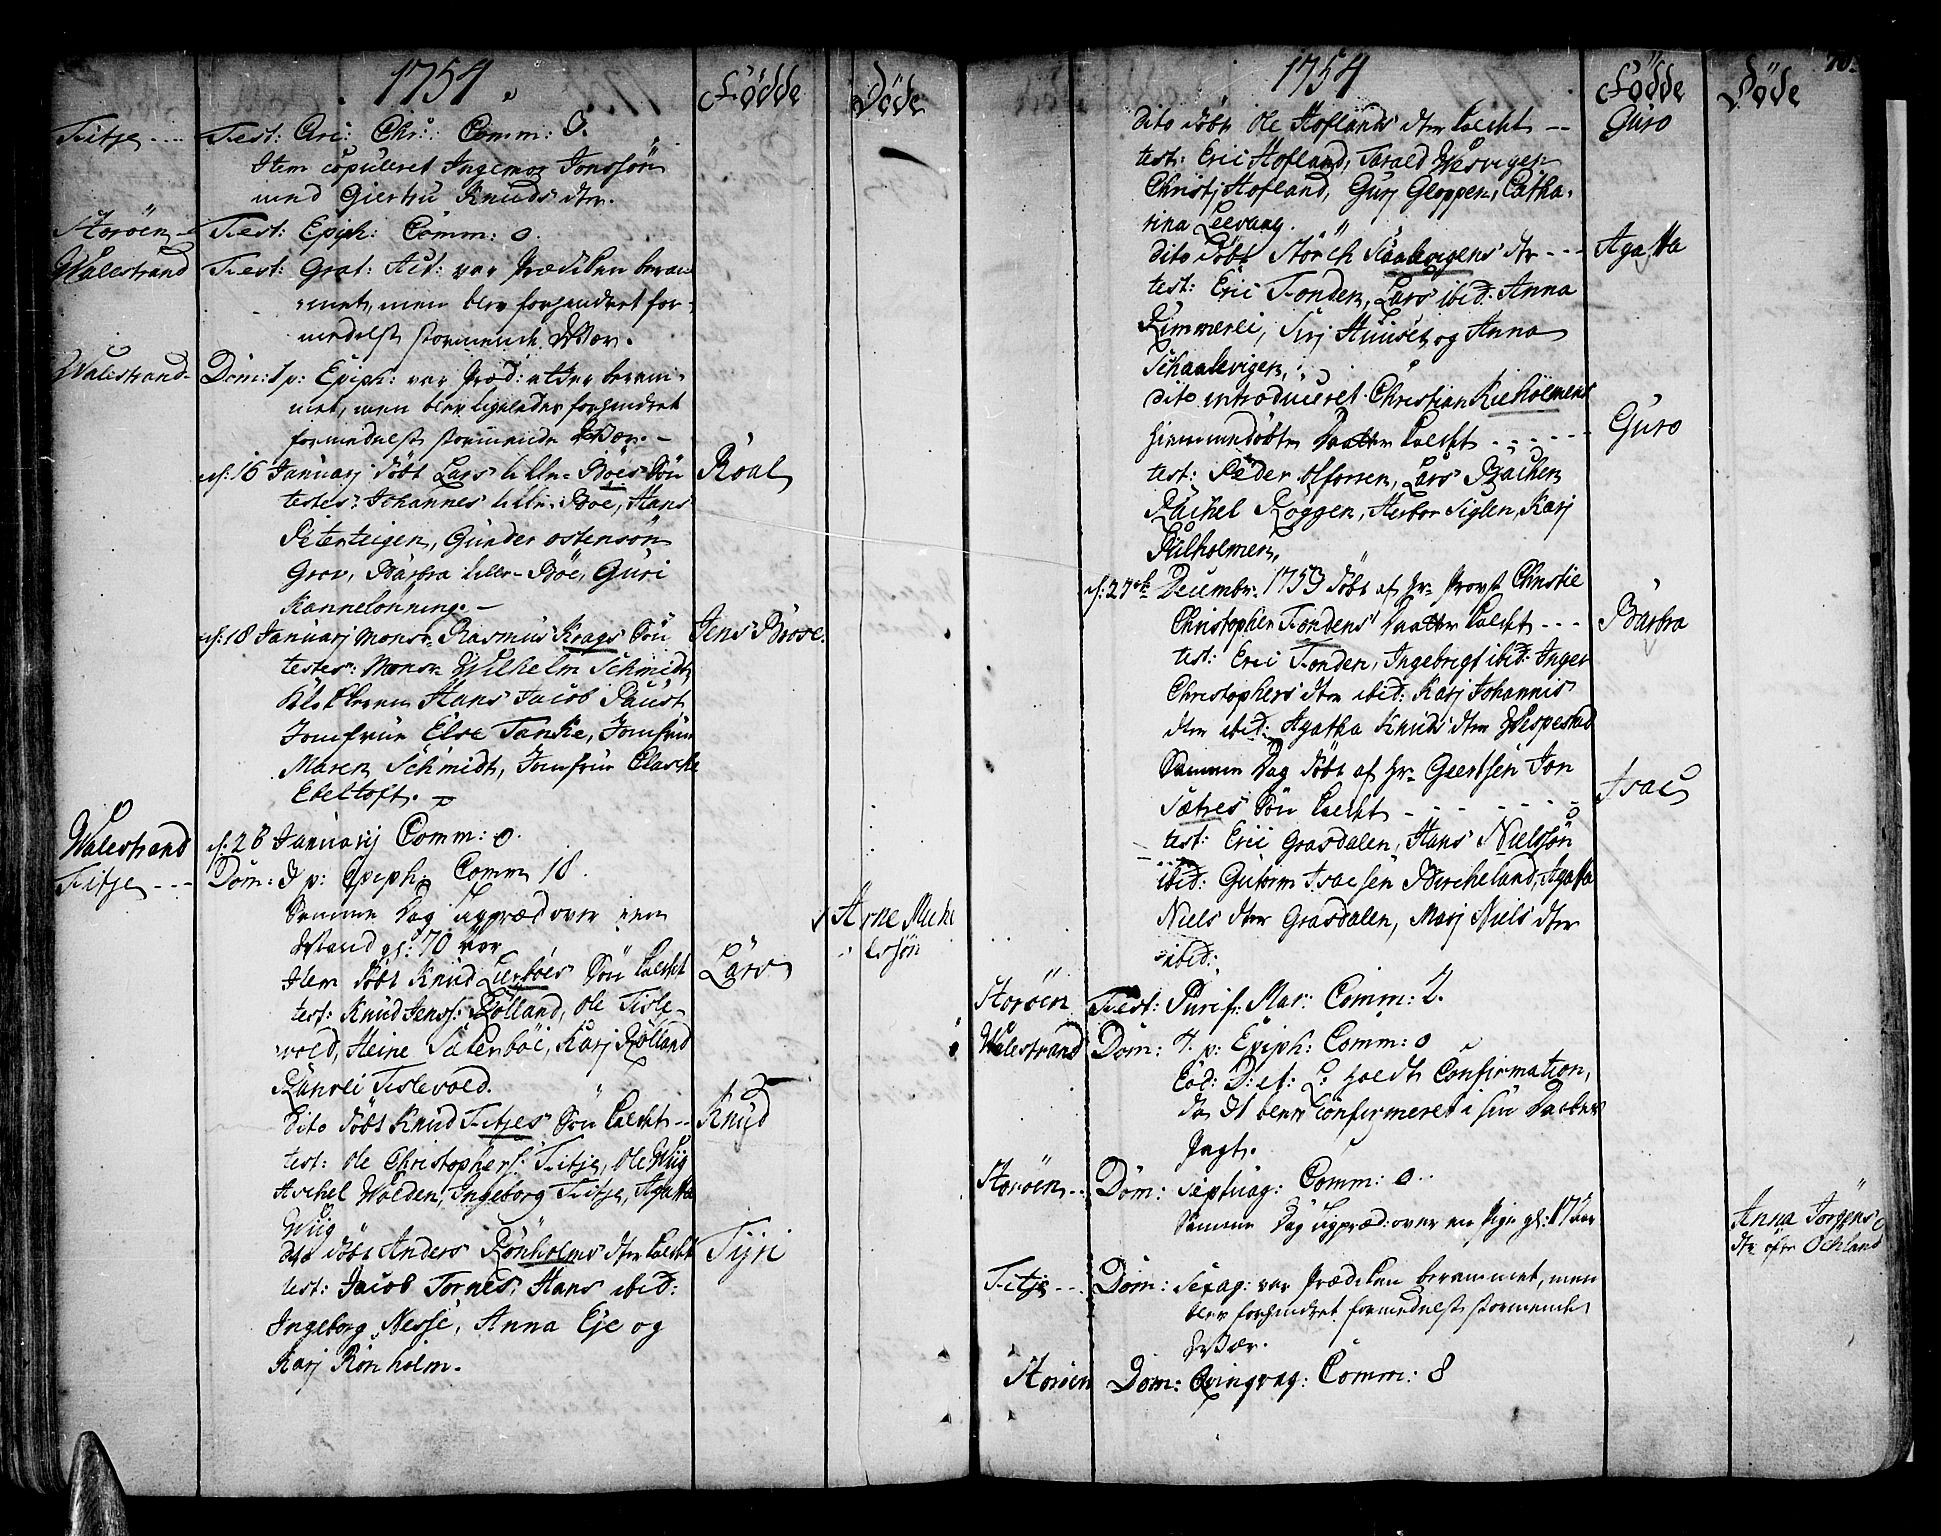 1754
Födde
Döde
Fitje Fest: Circ: Chr: Comm: 0.
Item copuleret Ingemog Jonssön
med Giertru Knuds dtr.
Storöen Fest: Epiph: Comm: 0.
Walestrand Fest: Grat: Act: var Prædiken beram
met, men blev forhindret for-
medelst stormende Wær.
Walestrand Dom: 1 p: Epiph: var Præd: atter beram-
met, men blev ligeledes forhindret
formedelst stormende Wær.
d: 16 Januarj döbt Lars Lille-Böes Sön Roal
testes: Johannes Lille-Böe, Hans
Peterteigen, Gunder ostensön
Grov, Barbra Lille-Böe, Guri
Kannelönning.
d: 18 Januarj Monsr Rasmus Krags Sön Jens Boose.
testes: Monsr Wilhelm Schmidt,
Klokkeren Hans Jacob Paust
Jomfrue Else Tanke, Jomfrue
Maren Schmidt, Jomfrue Clasche
Ebeltoft.
Walestrand d: 26 Januarij Comm: 0.
Fitje Dom: 3 p: Epiph: Comm 18.
Samme Dag ligpræd over een
Mand gl: 70 aar Arne Miche
lssön
Item döbt Knud Lierböes Sön kaldet Lars
test: Knud Jenss: Rölland, Ole Tisle-
vold, Heine Sæterböe, Karj Rölland
Ranvei Tislevold.
Dito döbt Knud Fitjes Sön kaldet Knud
test: Ole Christophers: Fitje, Ole Wiig
Aschel Wolden, Ingeborg Fitje, Agatta
Wiig
dito döbt Anders Rönholms dtr kaldet Tyri
test: Jacob Tornes, Hans ibid:
Ingeborg Nesse, Anna Eje og
Karj Rönholm.
1754
Födde
Döde
70.
dito döbt Ole Hoflands dtr kaldet Guro
test: Eric Hofland, Tarald Wesvigen
Christj Hofland, Gurj Gloppen, Catha-
rina Leevaag.
dito döbt Störch Skaalevigens dtr Agatta
test: Eric Tonden, Lars ibid: Anna
Rimmerei, Sirj Huuset og Anna
Schaalevigen,
dito introduceret Christian Kieholmens
hiemmedöbte Daatter kaldet Guro
test: Peder Alforsen, Lars Backen
Rachel Roggen, Herbor Siglen, Karj
Kulholmen,
d: 27de Decembr: 1753 döbt af Hr Provst Christie
Christopher Tondens Daatter kaldet Barbra
test: Eric Tonden, Ingebrigt ibid: Inger
Christophers dtr ibid: Karj Johannis
dtr ibid: Agatha Knuds dtr Wespestad
Samme Dag döbt af Hr Geertsen Jon
Sætres Sön kaldet Isac
test: Eric Grasdalen, Hans Nielssön
ibid: Gutorm Isacsen Bircheland, Agatta
Niels dtr Grasdalen, Marj Niels dtr
ibid:
Storöen Fest: Purif: Mar: Comm: 2.
Walestrand Dom: 4. p: Epiph: Comm: 0
Eod: D: et: L: holdt Confirmation,
da 31 blev Confirmeret i sin Daabes
Pagt.
Storöen Dom: Septuag: Comm: 0.
Samme Dag ligpræd: over en Pige gl: 17 aar
Anna Jörgens
dtr öfre Ochland
Fitje Dom: Sexag: var Prædiken berammet, men
blev forhindret formedelst stormende
Wær.
Storöen Dom: Qvinqvag: Comm: 8